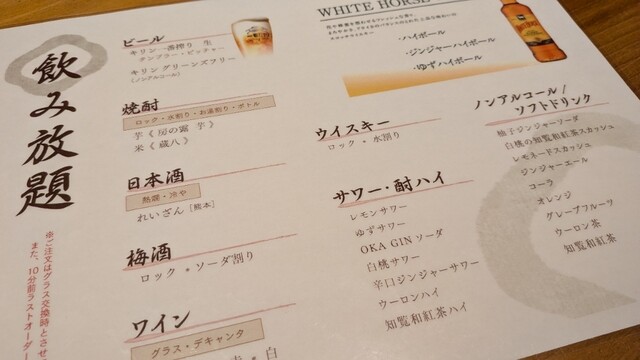 飲み放題
※ご注文はグラス交換時とさせ
また、10分前ラストオーダー
ビール
キリン 一番搾り 生
タンブラー・ピッチャー
キリン グリーンズフリー
(ノンアルコール)
焼酎
ロック・水割り・お湯割り・ボトル
芋《房の露 芋》
米《蔵八》
日本酒
熱燗・冷や
れいざん［熊本］
梅酒
ロック・ソーダ割り
ワイン
グラス・デキャンタ
赤・白
WHITE HORSE
・ハイボール
・ジンジャーハイボール
・ゆずハイボール
ウイスキー
ロック・水割り
サワー・酎ハイ
レモンサワー
ゆずサワー
OKA GINソーダ
白桃サワー
辛口ジンジャーサワー
ウーロンハイ
知覧和紅茶ハイ
ノンアルコール/
ソフトドリンク
柚子ジンジャーソーダ
白桃の知覧和紅茶スカッシュ
レモネードスカッシュ
ジンジャーエール
コーラ
オレンジ
グレープフルーツ
ウーロン茶
知覧和紅茶